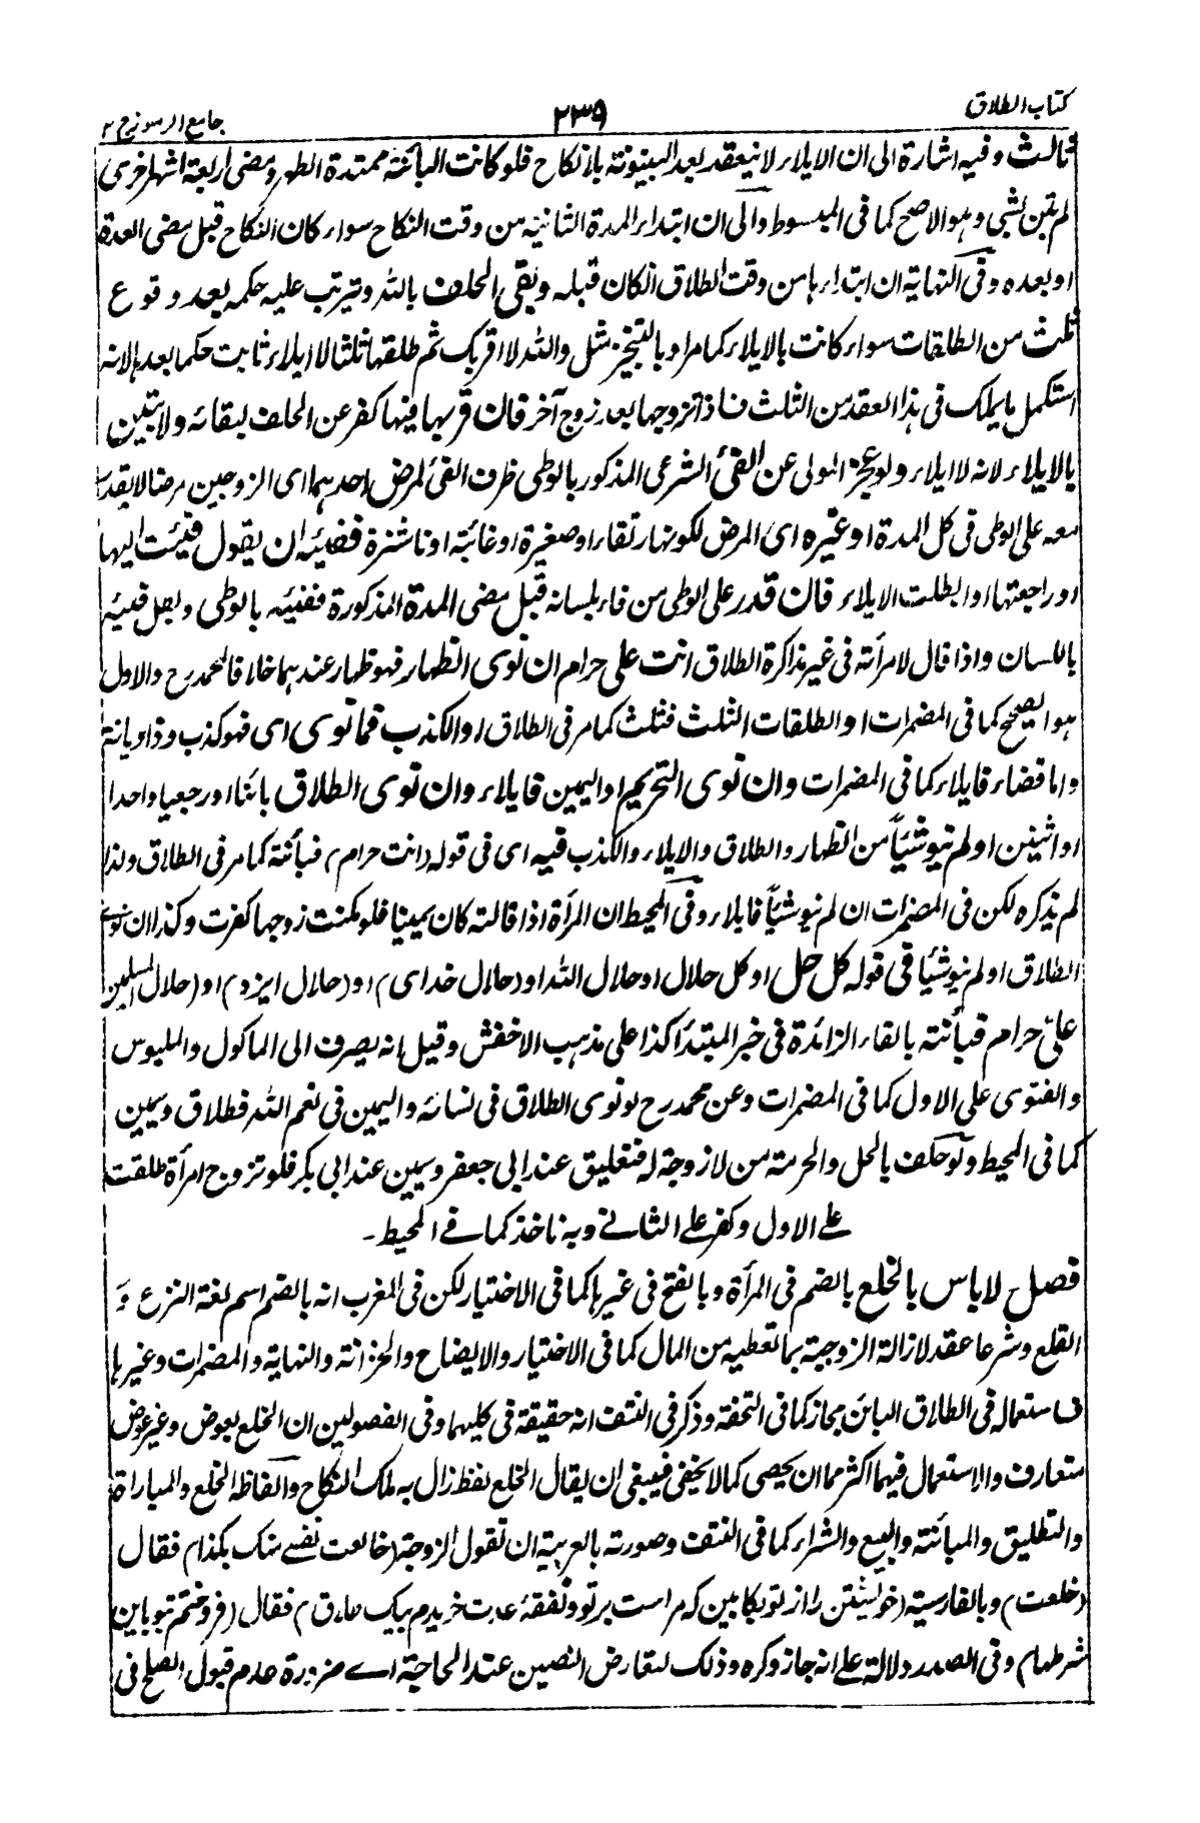 كتاب الطلاق
٢٣٩
جامع الرموز ج ٢
ثالث وفيه اشارة الى ان الايلاء لا ينعقد بعد البينونة بلا نكاح فلو كانت البائنة ممتدة الطهر ومضى اربعة اشهر اخرى
لم تبن بشئ وهو الاصح كما فى المبسوط والى ان ابتداء المدة الثانية من وقت النكاح سواء كان النكاح قبل مضى العدة
او بعده وفى النهاية ان ابتداءها من وقت الطلاق ان كان قبله وبقى الحلف بالله وترتب عليه حكمه بعد وقوع
ثلث من الطلقات سواء كانت بالايلاء كما مر او بالتنجيز مثل والله لا اقربك ثم طلقها ثلثا لا ايلاء ثابت حكما بعدها لانه
استكمل ما يملك فى هذا العقد من الثلث فاذا تزوجها بعد زوج آخر فان قربها فيها كفر عن الحلف لبقائه ولا تبين
بالايلاء لانه لا ايلاء ولو عجز المولى عن الفئ الشرعى المذكور بالوطى ظرف الفئ لمرض احدهما اى الزوجين مرضا لا يقدر
معه على الوطى فى كل المدة او غيره اى المرض لكونها رتقاء او صغيرة او غائبة او ناشزة ففيئه ان يقول فئت اليها
او راجعتها او ابطلت الايلاء فان قدر على الوطى من فاء بلسانه قبل مضى المدة المذكورة ففيئه بالوطى وبطل فيئه
باللسان واذا قال لامرأته فى غير مذاكرة الطلاق انت على حرام ان نوى الظهار فهو ظهار عندهما خلافا لمحمد رح والاول
هو الصحيح كما فى المضمرات او الطلقات الثلث فثلث كما مر فى الطلاق او الكذب فما نوى اى فهو كذب وذا ديانة
واما قضاء فايلاء كما فى المضمرات وان نوى التحريم او اليمين فايلاء وان نوى الطلاق بائنا او رجعيا واحدا
او اثنين او لم ينو شيئاً من الظهار والطلاق والايلاء والكذب فيه اى فى قوله (انت حرام) فبائنة كما مر فى الطلاق ولذا
لم يذكره لكن فى المضمرات ان لم ينو شيئاً فايلاء وفى المحيط ان المرأة اذا قالته كان يمينا فلو مكنت زوجها كفرت وكذا ان نوى
الطلاق او لم ينو شيئا فى قوله كل حل او كل حلال او حلال الله او (حلال خداى) او (حلال ايزد) او (حلال المسلمين
علىّ حرام فبائنة بالفاء الزائدة فى خبر المبتدأ كذا على مذهب الاخفش وقيل انه يصرف الى الماكول والملبوس
والفتوى على الاول كما فى المضمرات وعن محمد رح لو نوى الطلاق فى نسائه واليمين فى نعم الله فطلاق ويمين
كما فى المحيط ولو حلف بالحل والحرمة من لا زوجة له فتعليق عند ابى جعفر ويمين عند ابى بكر فلو تزوج امرأة طلقت
على الاول وكفر على الثانى وبه ناخذ كما فى المحيط۔
فصل لا باس بالخلع بالضم فى المرأة وبالفتح فى غيرها كما فى الاختيار لكن فى المغرب انه بالضم اسم لغة النزع و
القلع وشرعا عقد لازالة الزوجية بما تعطيه من المال كما فى الاختيار والايضاح والخزانة والنهاية والمضمرات وغيرها
فاستعماله فى الطلاق البائن مجاز كما فى التحفة وذكر فى النتف انه حقيقة فى كليهما وفى الفصولين ان الخلع بعوض وغير عوض
متعارف والاستعمال فيهما اكثر مما ان يحصى كما لا يخفى فينبغى ان يقال الخلع لفظ زال به ملك النكاح والفاظه الخلع والمباراة
والتطليق والمبائنة والبيع والشراء كما فى النتف وصورته بالعربية ان تقول الزوجة (خالعت نفسى منك بكذا) فقال
(خلعت) وبالفارسية (خويشتن را از تو بكابين كه مراست بر تو ونفقهٔ عدت خريدم بيك طلاق) فقال (فروختم بتو باين
شرطها) وفى الصدر دلالة على انه جاز وكره وذلك لتعارض النصين عند الحاجة اے ضرورة عدم قبول الصلح فى